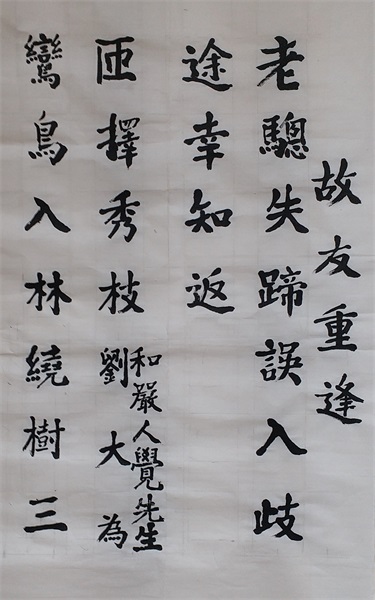 故友重逢
老驄失蹄誤入歧
途幸知返
鸞鳥入林繞樹三
匝擇秀枝
和嚴人覺先生
劉大為